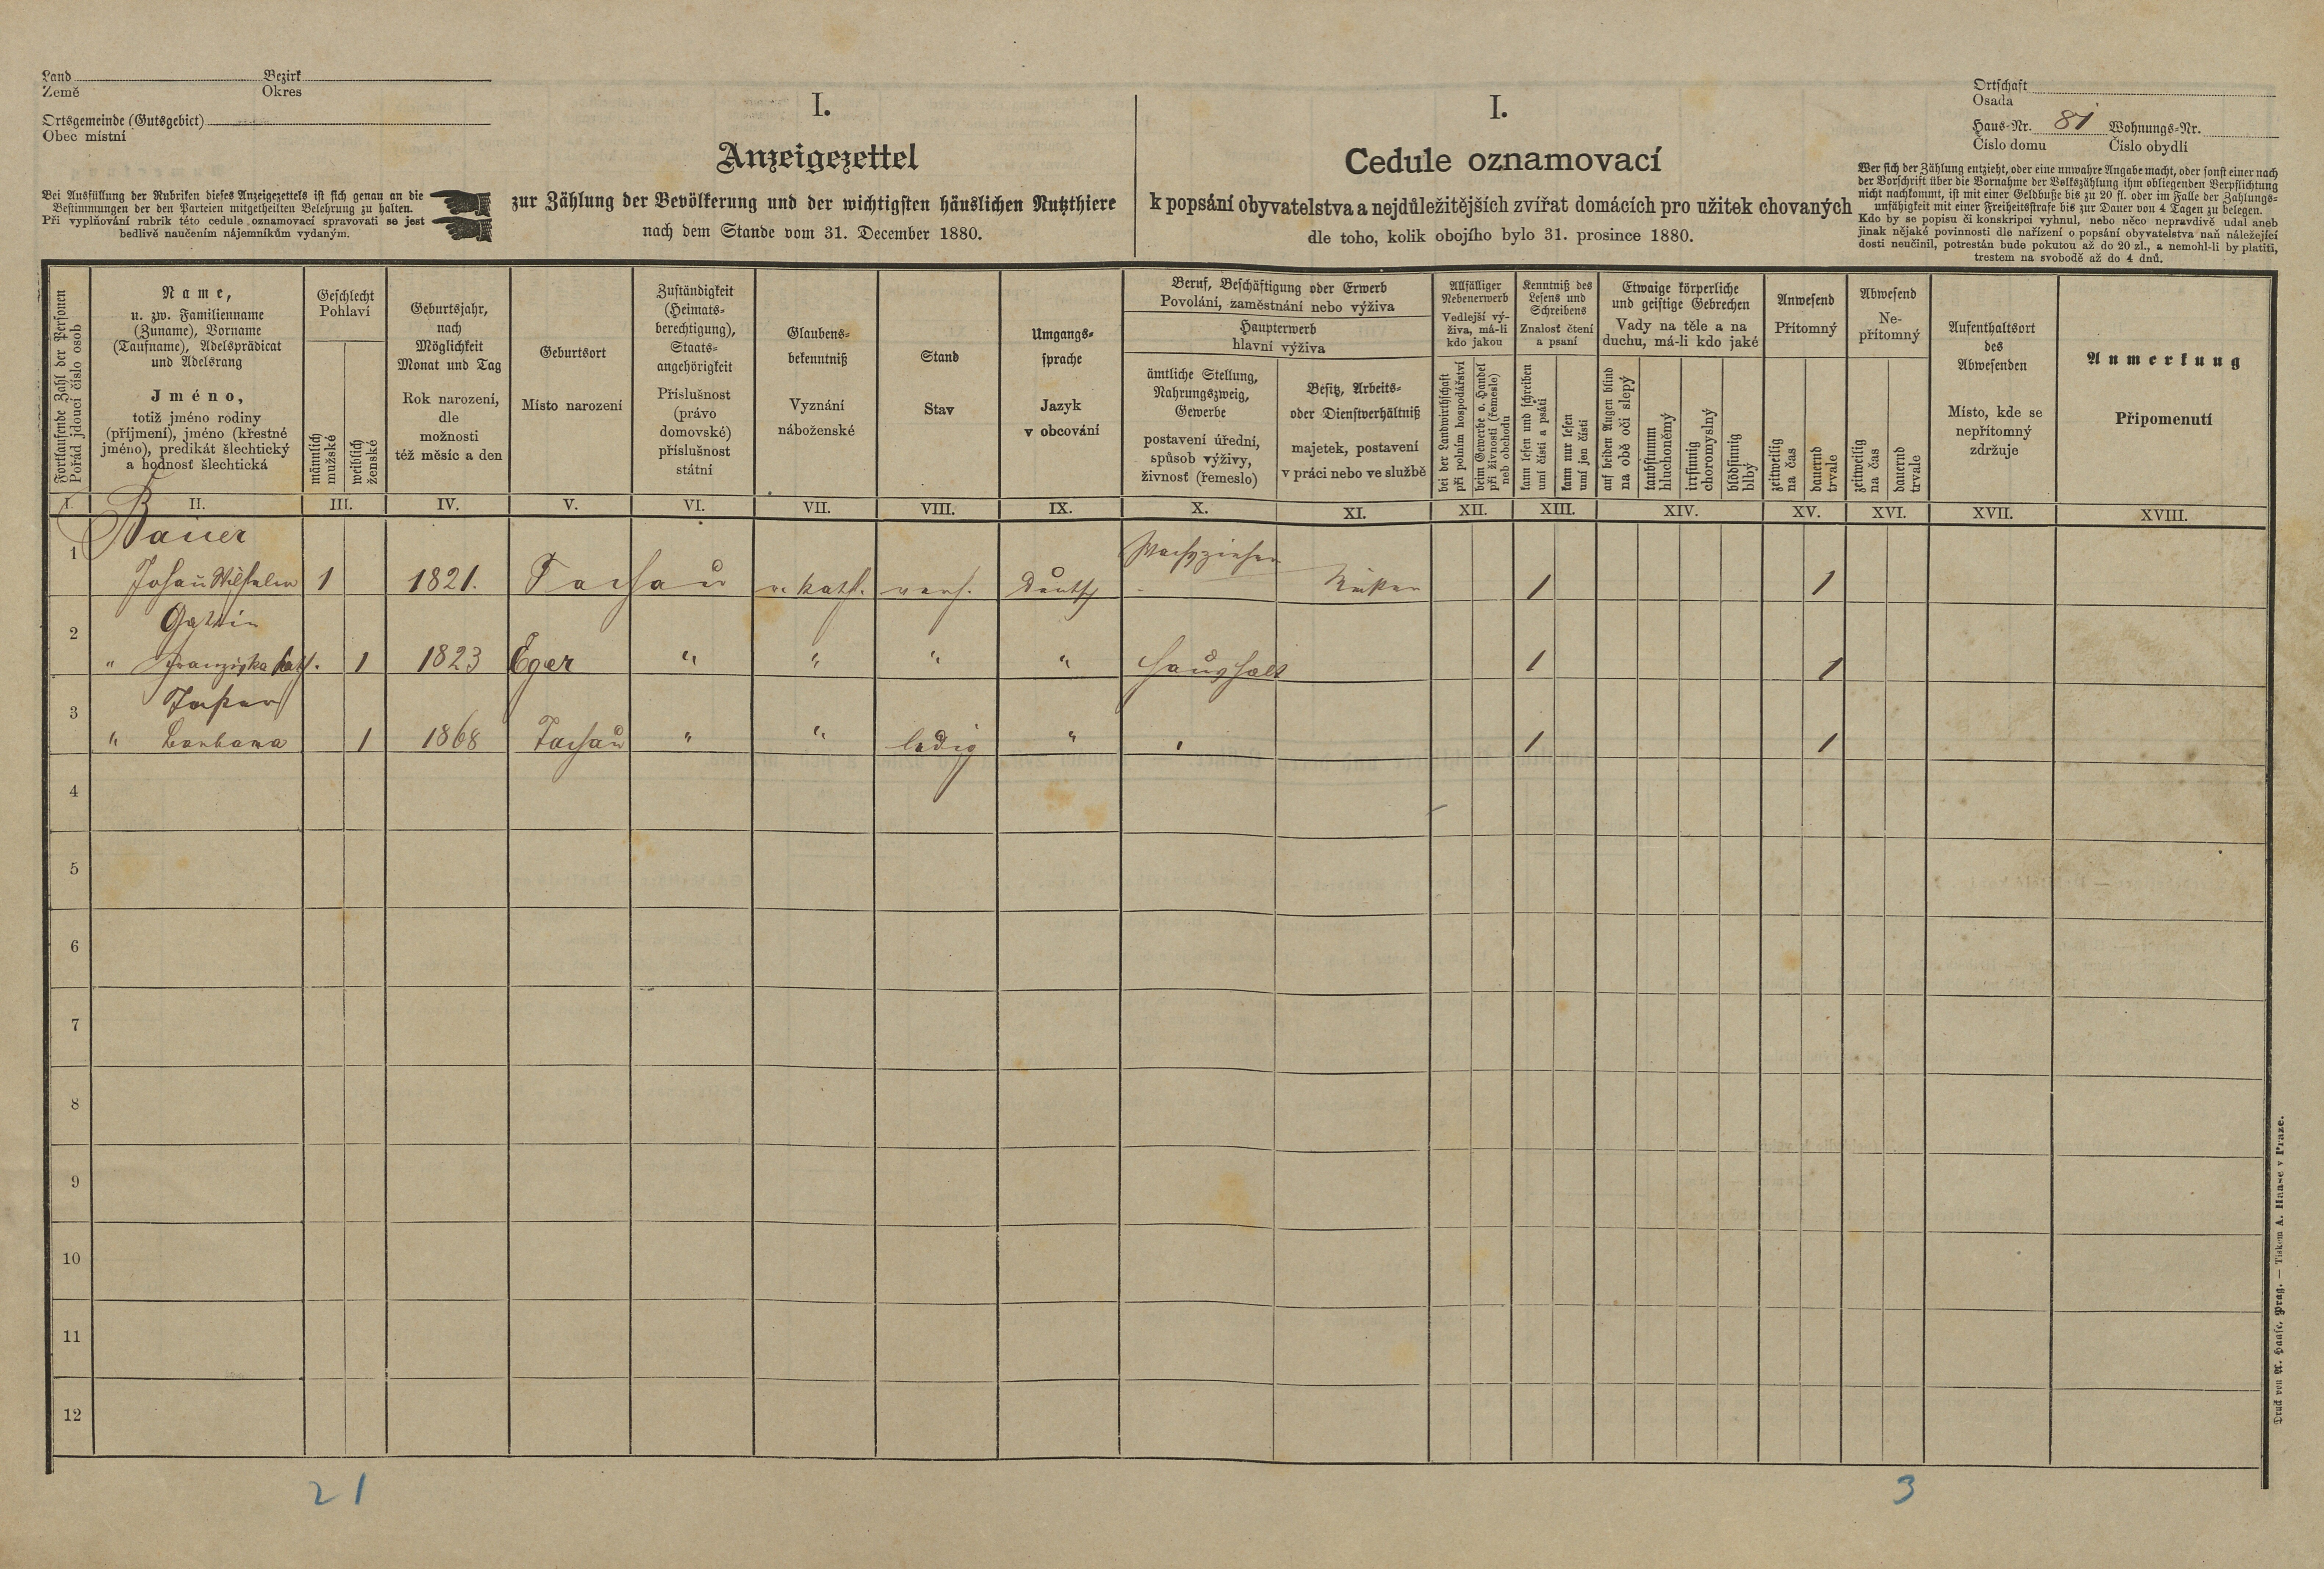 Land Bezirk
Země Okres
Ortsgemeinde (Gutsgebiet)
Obec místní
Bei Ausfüllung der Rubriken dieses Anzeigezettels ist sich genau an die
Bestimmungen der den Parteien mitgetheilten Belehrung zu halten.
Při vyplňování rubrik této cedule oznamovací spravovati se jest
bedlivě naučením nájemníkům vydaným.
I.
Anzeigezettel
zur Zählung der Bevölkerung und der wichtigsten häuslichen Nutzthiere
nach dem Stande vom 31. December 1880.
I.
Cedule oznamovací
k popsání obyvatelstva a nejdůležitějších zvířat domácích pro užitek chovaných
dle toho, kolik obojího bylo 31. prosince 1880.
Ortschaft
Osada
Haus-Nr. 81 Wohnungs-Nr.
Číslo domu Číslo obydlí
Wer sich der Zählung entzieht, oder eine unwahre Angabe macht, oder sonst einer nach
der Vorschrift über die Vornahme der Volkszählung ihm obliegenden Verpflichtung
nicht nachkommt, ist mit einer Geldbuße bis zu 20 fl. oder im Falle der Zahlungs-
unfähigkeit mit einer Freiheitsstrafe bis zur Dauer von 4 Tagen zu belegen.
Kdo by se popisu či konskripci vyhnul, nebo něco nepravdivě udal aneb
jinak nějaké povinnosti dle nařízení o popsání obyvatelstva naň náležející
dosti neučinil, potrestán bude pokutou až do 20 zl., a nemohl-li by platiti,
trestem na svobodě až do 4 dnů.
Fortlaufende Zahl der Personen
Pořád jdoucí číslo osob
Name,
u. zw. Familienname
(Zuname), Vorname
(Taufname), Adelsprädicat
und Adelsrang
Jméno,
totiž jméno rodiny
(příjmení), jméno (křestné
jméno), predikát šlechtický
a hodnosť šlechtická
Geschlecht
Pohlaví
männlich
mužské
weiblich
ženské
Geburtsjahr,
nach
Möglichkeit
Monat und Tag
Rok narození,
dle
možnosti
též měsíc a den
Geburtsort
Místo narození
Zuständigkeit
(Heimats-
berechtigung),
Staats-
angehörigkeit
Příslušnost
(právo
domovské)
příslušnost
státní
Glaubens-
bekenntniß
Vyznání
náboženské
Stand
Stav
Umgangs-
sprache
Jazyk
v obcování
Beruf, Beschäftigung oder Erwerb
Povolání, zaměstnání nebo výživa
Haupterwerb
hlavní výživa
ämtliche Stellung,
Nahrungszweig,
Gewerbe
postavení úřední,
spůsob výživy,
živnosť (řemeslo)
Besitz, Arbeits-
oder Dienstverhältniß
majetek, postavení
v práci nebo ve službě
Allfälliger
Nebenerwerb
Vedlejší vý-
živa, má-li
kdo jakou
bei der Landwirthschaft
při polním hospodářství
beim Gewerbe o. Handel
při živnosti (řemesle)
neb obchodu
Kenntniß des
Lesens und
Schreibens
Znalosť čtení
a psaní
kann lesen und schreiben
umí čísti a psáti
kann nur lesen
umí jen čísti
Etwaige körperliche
und geistige Gebrechen
Vady na těle a na
duchu, má-li kdo jaké
auf beiden Augen blind
na obě oči slepý
taubstumm
hluchoněmý
irrsinnig
choromyslný
blödsinnig
blbý
Anwesend
Přítomný
zeitweilig
na čas
dauernd
trvale
Abwesend
Ne-
přítomný
zeitweilig
na čas
dauernd
trvale
Aufenthaltsort
des
Abwesenden
Místo, kde se
nepřítomný
zdržuje
Anmerkung
Připomenutí
I. II. III. IV. V. VI. VII. VIII. IX. X. XI. XII. XIII. XIV. XV. XVI. XVII. XVIII.
Bauer
1 Johañ Wilhelm 1 1821. Tachau r. kath. verh. Deutsch 1 1
Gattin
2 " Franziska kath. 1 1823 Eger " " " " Haushalt 1 1
3 " Barbara 1 1868 Tachau " " ledig " " 1 1
4
5
6
7
8
9
10
11
12
21 3
Druck von A. Haase, Prag. — Tiskem A. Haase v Praze.